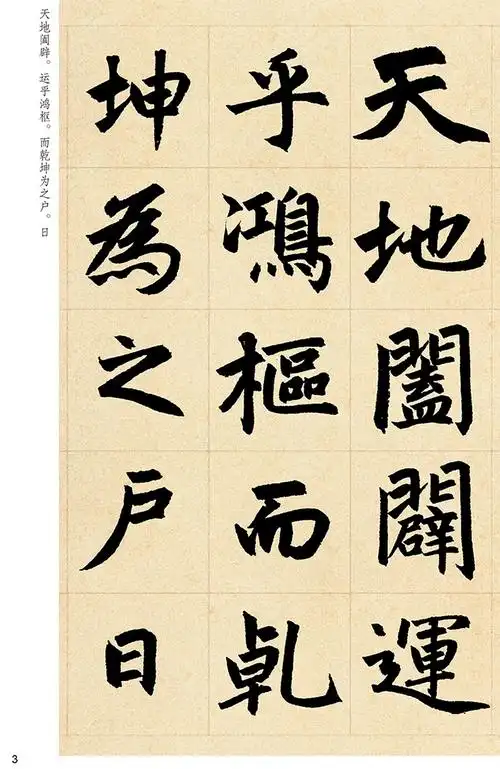 天地闔闢運
乎鴻樞而乹
坤為之户日
天地阖辟。运乎鸿枢。而乾坤为之户。日
3